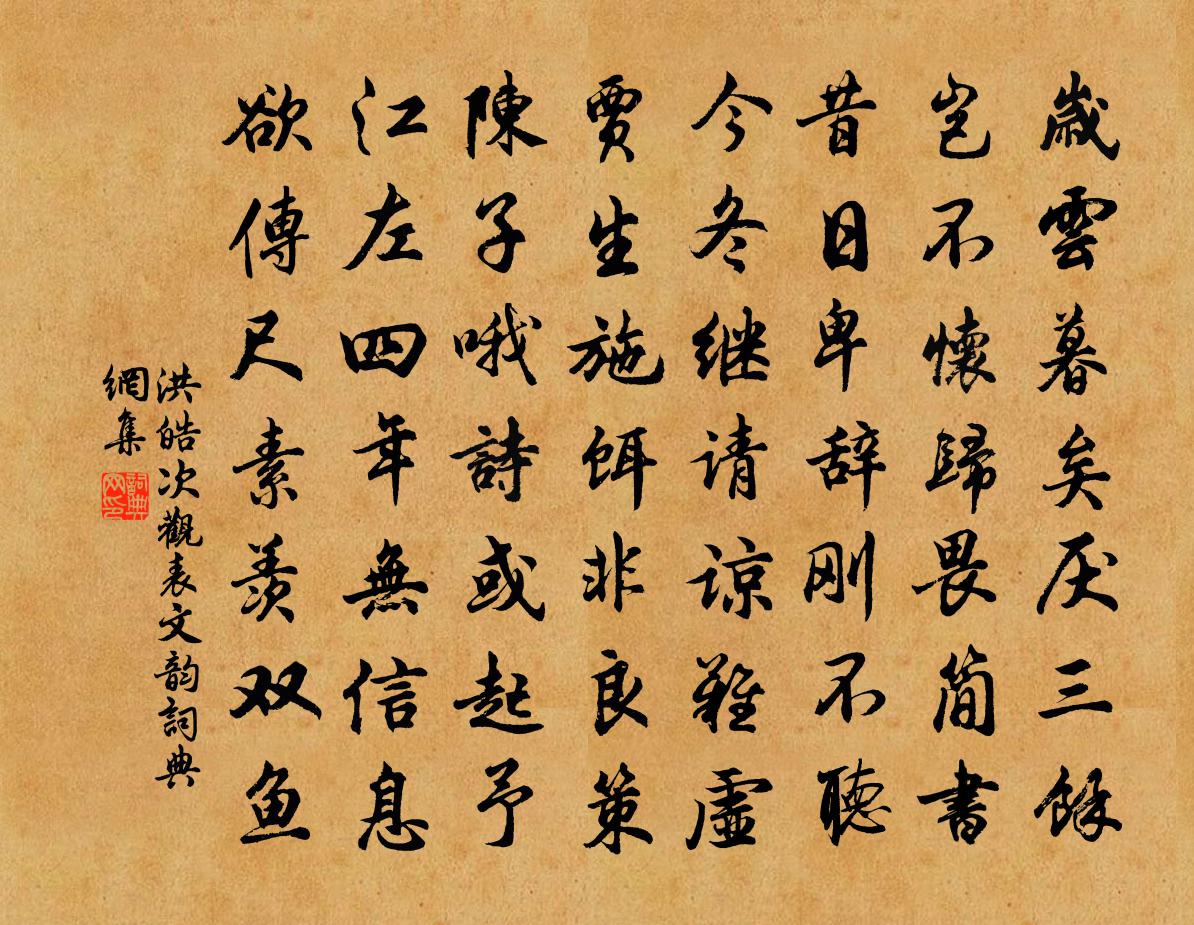 歲雲暮矣厌三餘
豈不懷歸畏简書
昔日卑辞刚不聽
今冬继请谅難虛
賈生施饵非良策
陳子哦詩或起予
江左四年無信息
欲傳尺素羡双鱼
洪皓次觀表文韵詞典
網集
詞典
网印